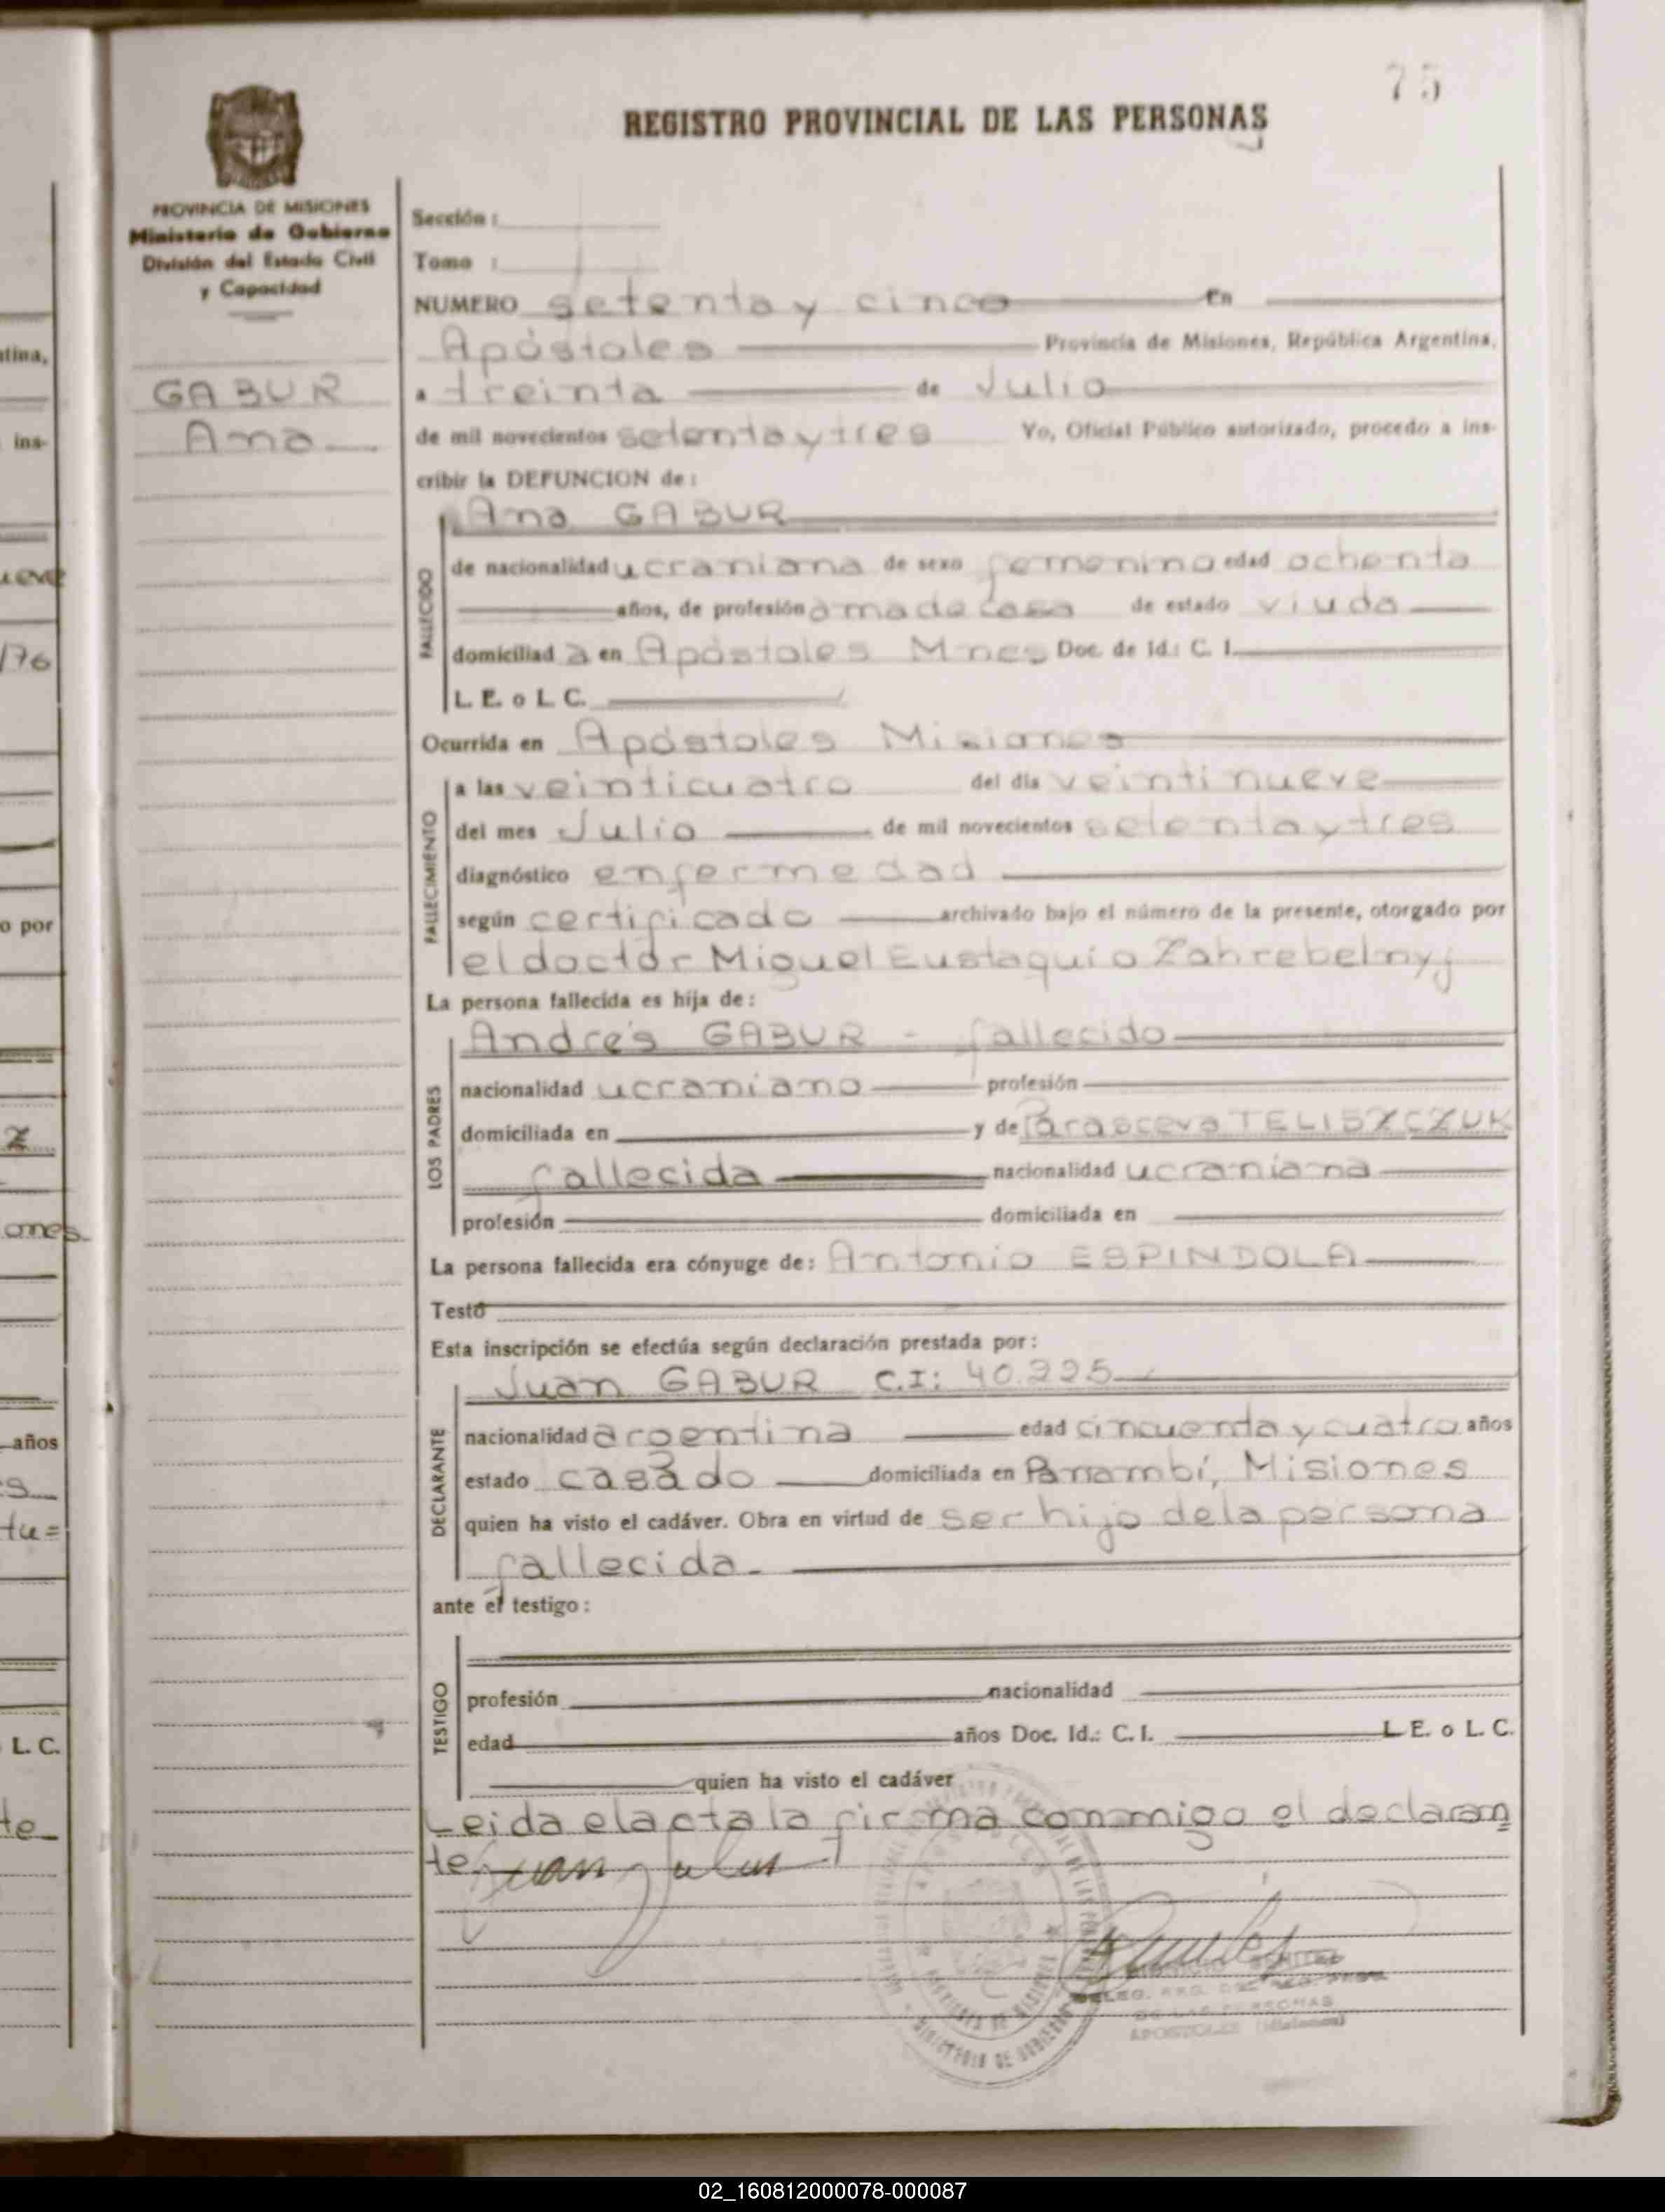 75
REGISTRO PROVINCIAL DE LAS PERSONAS
PROVINCIA DE MISIONES
Ministerio de Gobierno
División del Estado Civil
y Capacidad
GABUR
Ana
Sección:
Tomo :
NUMERO setenta y cinco En
Apóstoles Provincia de Misiones, República Argentina,
a treinta de Julio
de mil novecientos setenta y tres Yo, Oficial Público autorizado, procedo a ins-
cribir la DEFUNCION de:
Ana GABUR
FALLECIDO
de nacionalidad ucraniana de sexo femenino edad ochenta
años, de profesión ama de casa de estado viuda
domiciliad a en Apóstoles Mnes Doc. de Id.: C. I.
L. E. o L. C.
Ocurrida en Apóstoles Misiones
FALLECIMIENTO
a las veinticuatro del día veintinueve
del mes Julio de mil novecientos setenta y tres
diagnóstico enfermedad
según certificado archivado bajo el número de la presente, otorgado por
el doctor Miguel Eustaquio Zahrebelnyj
La persona fallecida es hija de:
LOS PADRES
Andrés GABUR - fallecido
nacionalidad ucraniano profesión
domiciliada en y de Parasceva TELISZCZUK
fallecida nacionalidad ucraniana
profesión domiciliada en
La persona fallecida era cónyuge de: Antonio ESPINDOLA
Testó
Esta inscripción se efectúa según declaración prestada por:
DECLARANTE
Juan GABUR C.I: 40.225
nacionalidad argentina edad cincuenta y cuatro años
estado casado domiciliada en Parrambí, Misiones
quien ha visto el cadáver. Obra en virtud de ser hijo de la persona
fallecida.
ante el testigo:
TESTIGO
profesión nacionalidad
edad años Doc. Id.: C. I. L. E. o L. C.
quien ha visto el cadáver
Leida el acta la firma conmigo el declaran
te.
APOSTOLES (Misiones)
tina,
ins-
/76
o por
ones
años
tu=
L. C.
te
02_160812000078-000087